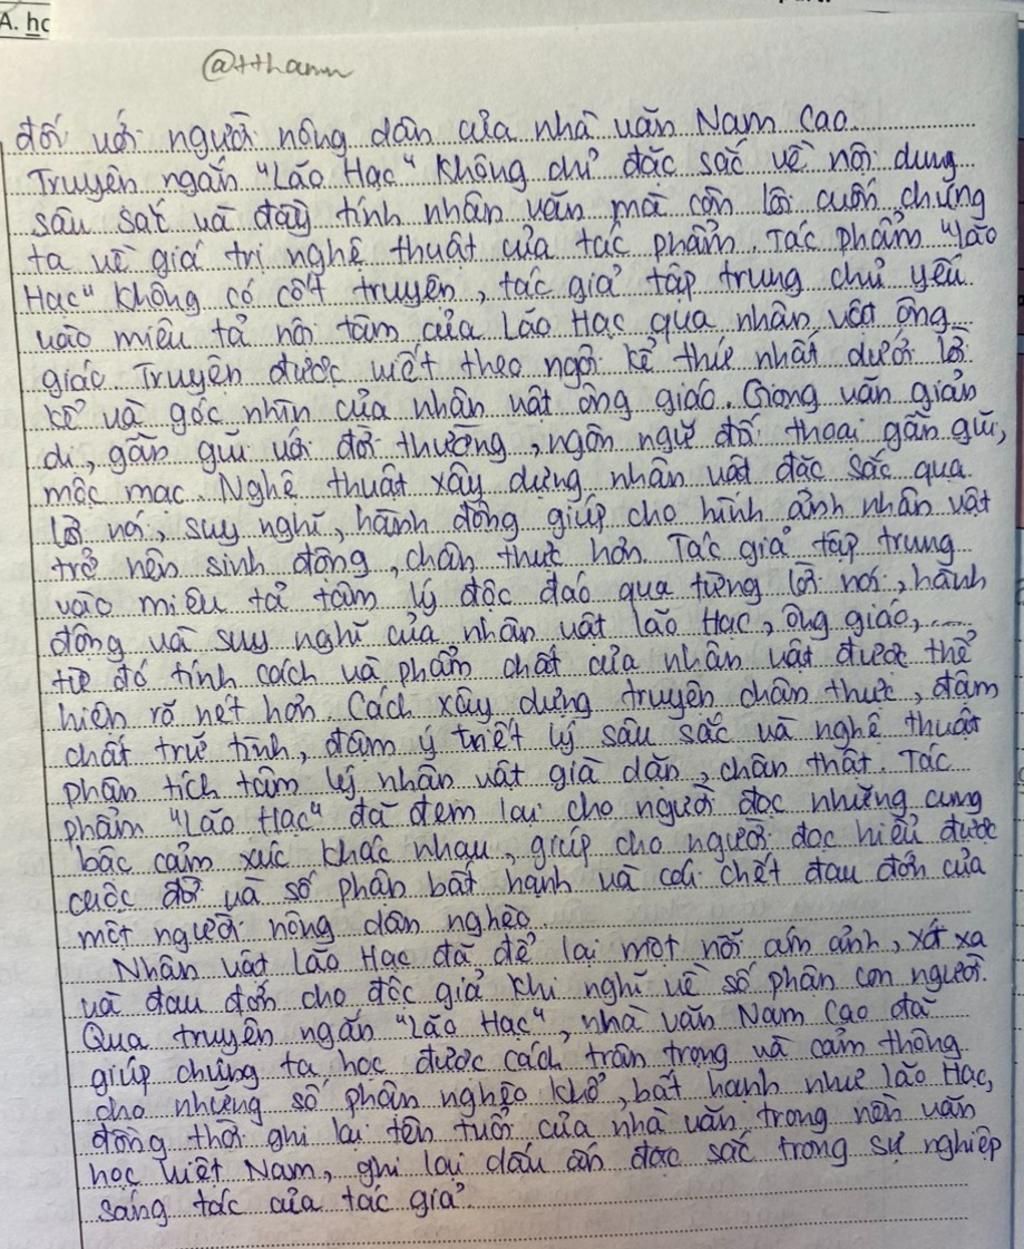 A. hc
@tthamn
đối với người nông dân của nhà văn Nam Cao.
Truyện ngắn "Lão Hạc" không chỉ đặc sắc về nội dung
sâu sắc và đầy tính nhân văn mà còn lôi cuốn chúng
ta về giá trị nghệ thuật của tác phẩm. Tác phẩm "Lão
Hạc" không có cốt truyện, tác giả tập trung chủ yếu
vào miêu tả nội tâm của Lão Hạc qua nhân vật ông
giáo. Truyện được viết theo ngôi kể thứ nhất dưới lời
kể và góc nhìn của nhân vật ông giáo. Giọng văn giản
dị, gần gũi với đời thường, ngôn ngữ đối thoại gần gũi,
mộc mạc. Nghệ thuật xây dựng nhân vật đặc sắc qua
lời nói, suy nghĩ, hành động giúp cho hình ảnh nhân vật
trở nên sinh động, chân thực hơn. Tác giả tập trung
vào miêu tả tâm lý độc đáo qua từng lời nói, hành
động và suy nghĩ của nhân vật lão Hạc, ông giáo,....
từ đó tính cách và phẩm chất của nhân vật được thể
hiện rõ nét hơn. Cách xây dựng truyện chân thực, đậm
chất trữ tình, đậm ý triết lý sâu sắc và nghệ thuật
phân tích tâm lý nhân vật già dặn, chân thật. Tác
phẩm "Lão Hạc" đã đem lại cho người đọc những cung
bậc cảm xúc khác nhau, giúp cho người đọc hiểu được
cuộc đời và số phận bất hạnh và cái chết đau đớn của
một người nông dân nghèo.
Nhân vật Lão Hạc đã để lại một nỗi ám ảnh, xót xa
và đau đớn cho độc giả khi nghĩ về số phận con người.
Qua truyện ngắn "Lão Hạc", nhà văn Nam Cao đã
giúp chúng ta học được cách trân trọng và cảm thông
cho những số phận nghèo khổ, bất hạnh như lão Hạc,
đồng thời ghi lại tên tuổi của nhà văn trong nền văn
học Việt Nam, ghi lại dấu ấn đặc sắc trong sự nghiệp
sáng tác của tác giả.